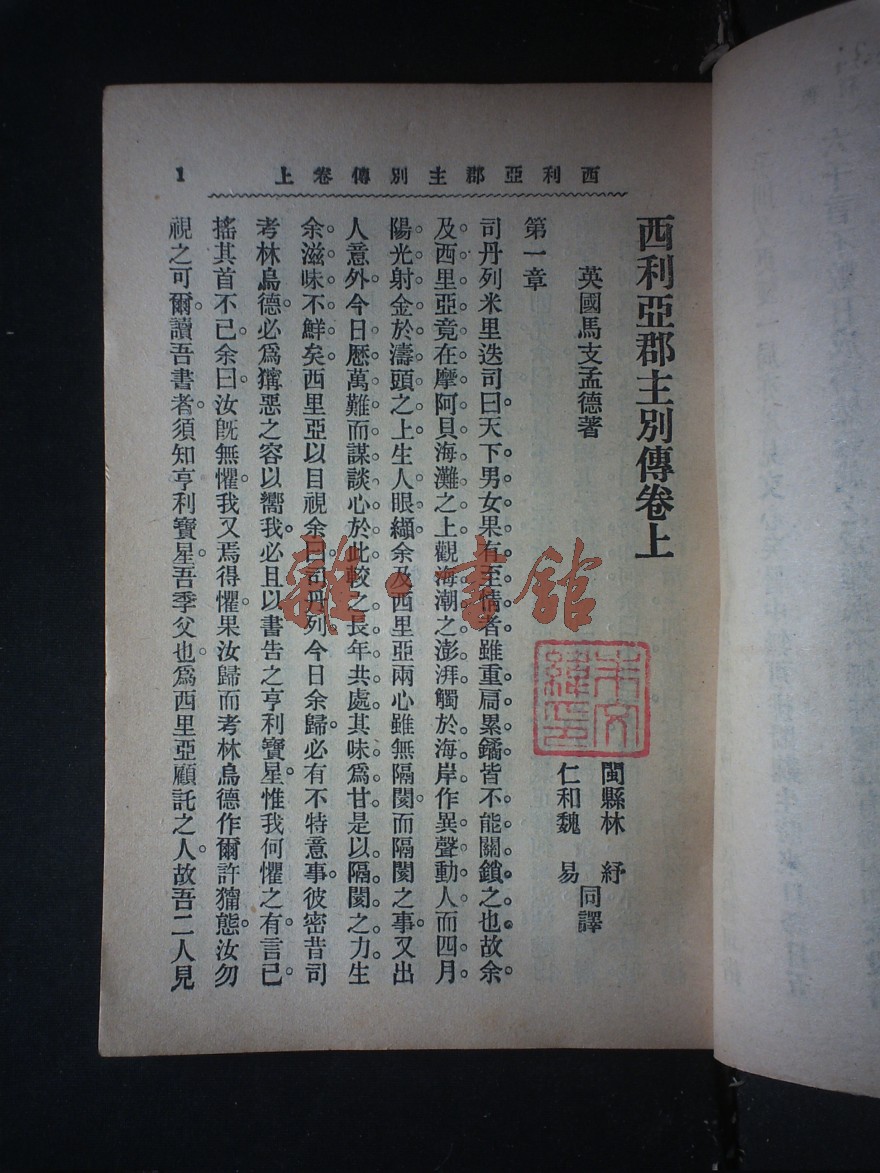 西利亞郡主別傳卷上
1
西利亞郡主別傳卷上
英國馬支孟德著
閩縣林　紓
仁和魏　易
同譯
第一章
司丹列米里迭司曰。天下男女果有至情者。雖重扃累鐍。皆不能關鎖之也。故余
及西里亞竟在摩阿貝海灘之上。觀海潮之澎湃。觸於海岸。作異聲動人。而四月
陽光射金於濤頭之上。生人眼纈。余及西里亞兩心雖無隔閡。而隔閡之事。又出
人意外。今日歷萬難而謀談心於此。較之長年共處。其味爲甘。是以隔閡之力。生
余滋味不鮮矣。西里亞以目視余曰。司丹列。今日余歸。必有不特意事。彼密昔司
考林烏德。必爲獰惡之容以嚮我。必且以書告之亨利寶星。惟我何懼之有。言已。
搖其首不已。余曰。汝旣無懼。我又焉得懼。果汝歸而考林烏德作爾許獰態。汝勿
視之可爾。讀吾書者。須知亨利寶星。吾季父也。爲西里亞顧託之人。故吾二人見
雜·書館